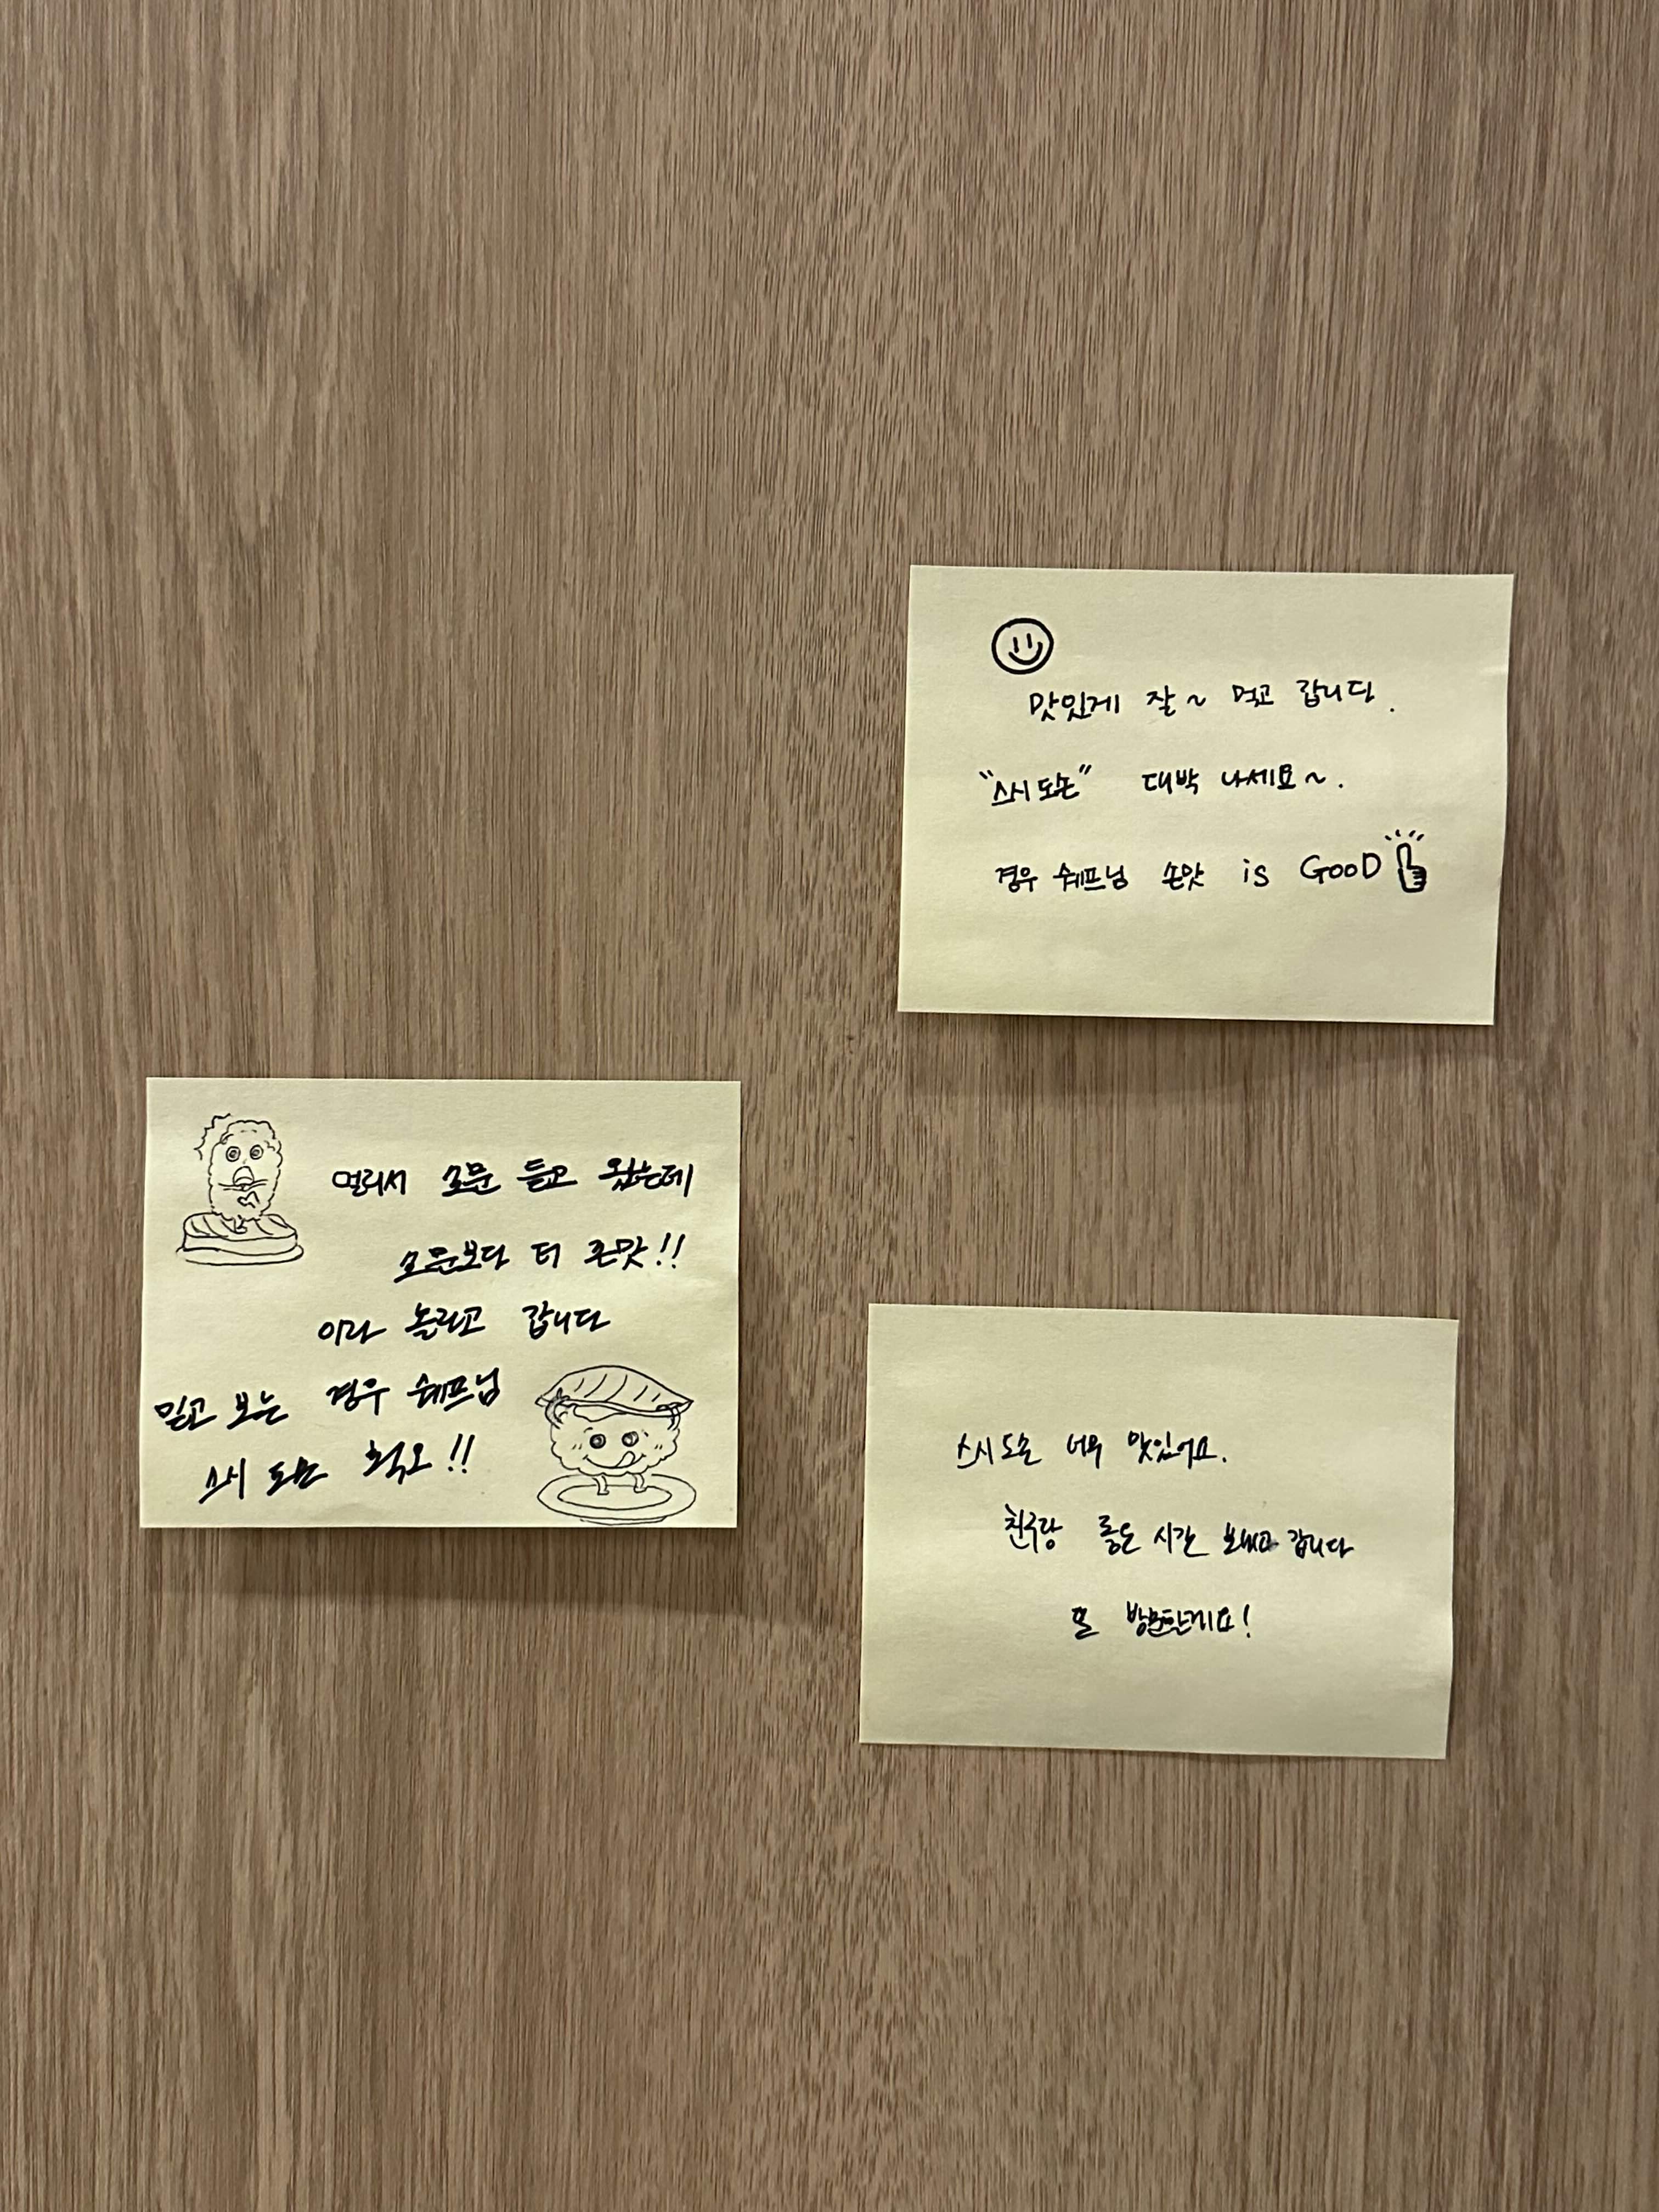 맛있게 잘~ 먹고 갑니다.
"스시도손" 대박 나세요~.
경우 쉐프님 손맛 is GooD
멀리서 소문 듣고 왔는데
소문보다 더 존맛!!
이라 놀라고 갑니다
믿고 보는 경우 쉐프님
스시 도손 최고!!
스시도손 너무 맛있어요.
친구랑 좋은 시간 보내고 갑니다
또 방문할게요!